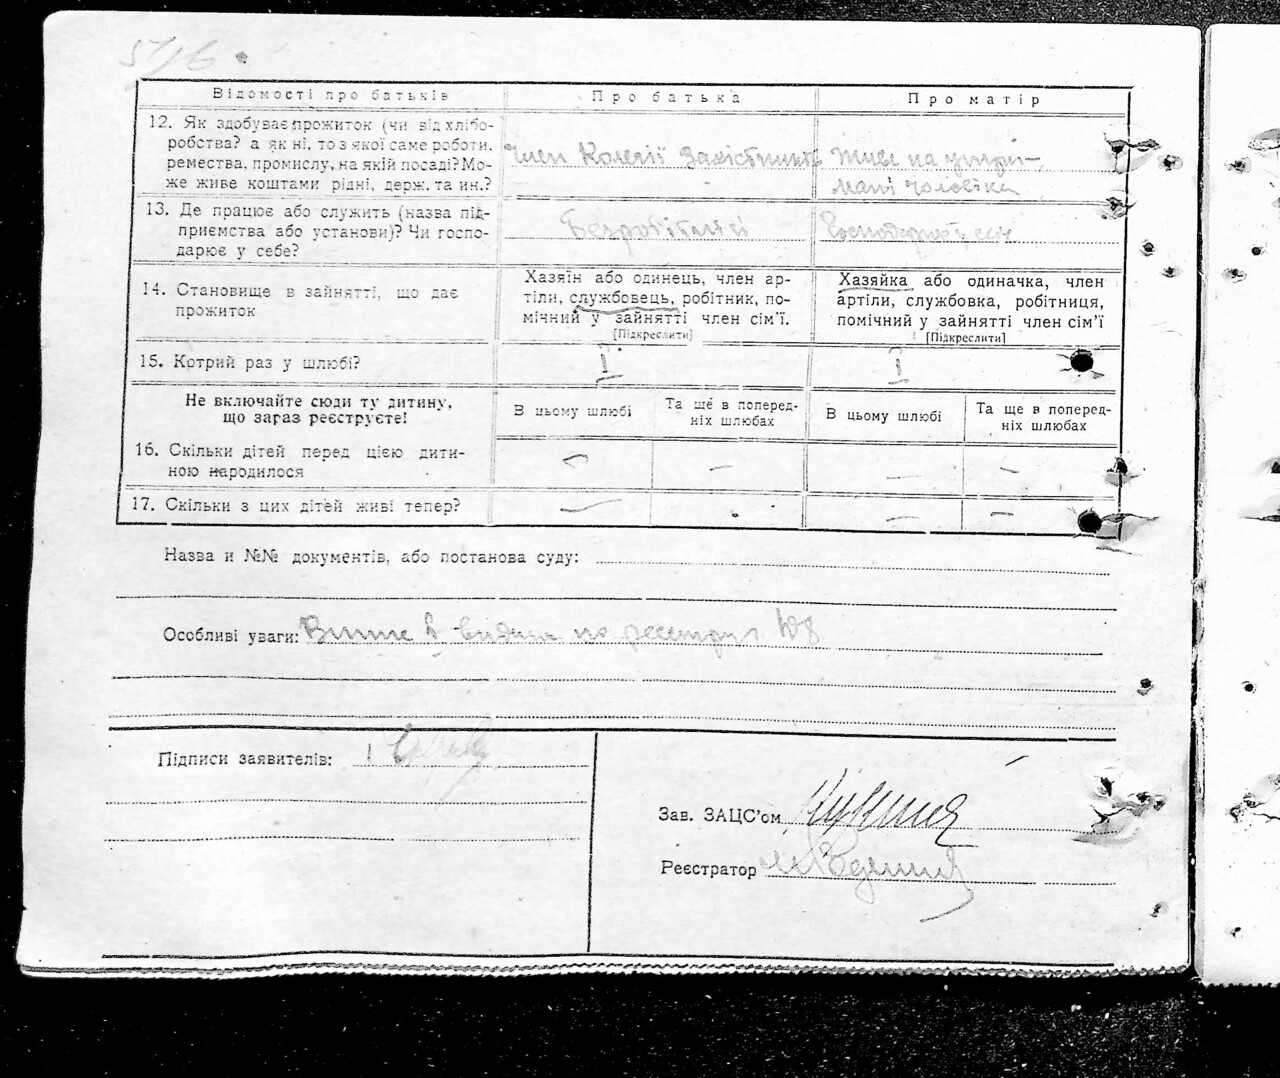 5176
Відомості про батьків Про батька Про матір
12. Як здобуває прожиток (чи від хлібо-
робства? а як ні, то з якої саме роботи,
ремества, промислу, на якій посаді? Мо-
же живе коштами рідні, держ. та ин.?
Член Колегії Захістників
Живе на утри-
мані чоловіка
13. Де працює або служить (назва під-
приємства або установи)? Чи госпо-
дарює у себе?
Безробітний
14. Становище в зайнятті, що дає
прожиток
Хазяїн або одинець, член ар-
тіли, службовець, робітник, по-
мічний у зайнятті член сім'ї.
[Підкреслити]
Хазяйка або одиначка, член
артіли, службовка, робітниця,
помічний у зайнятті член сім'ї
[Підкреслити]
15. Котрий раз у шлюбі? I I
Не включайте сюди ту дитину,
що зараз реєструєте!
В цьому шлюбі
Та ще в поперед-
ніх шлюбах
В цьому шлюбі
Та ще в поперед-
ніх шлюбах
16. Скільки дітей перед цією дити-
ною народилося — — — —
17. Скільки з цих дітей живі тепер? — — —
Назва и №№ документів, або постанова суду:
Особливі уваги: по реестру
Підписи заявителів: 1
Зав. ЗАЦС'ом
Реєстратор